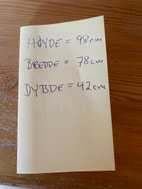 HØYDE = 98cm
BREDDE = 78cm
DYBDE = 42cm